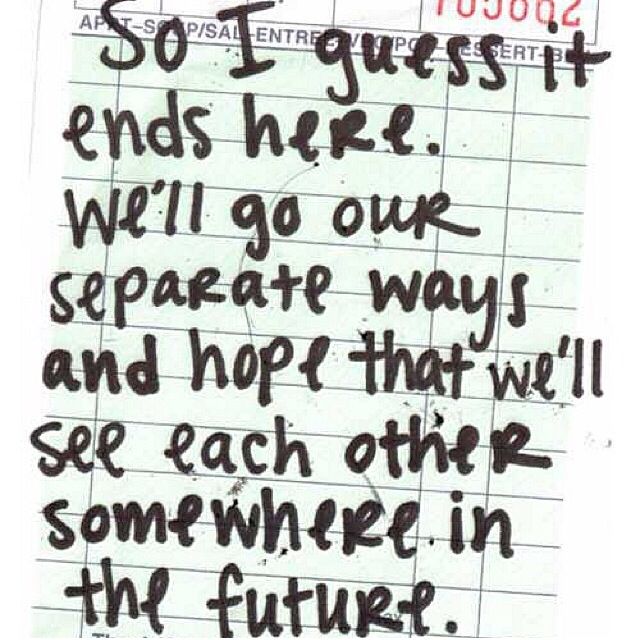 105662
APPT-SOUP/SAL-ENTREE-VEG/POT-DESSERT-BEV
So I guess it
ends here.
We'll go our
separate ways
and hope that we'll
see each other
somewhere in
the future.